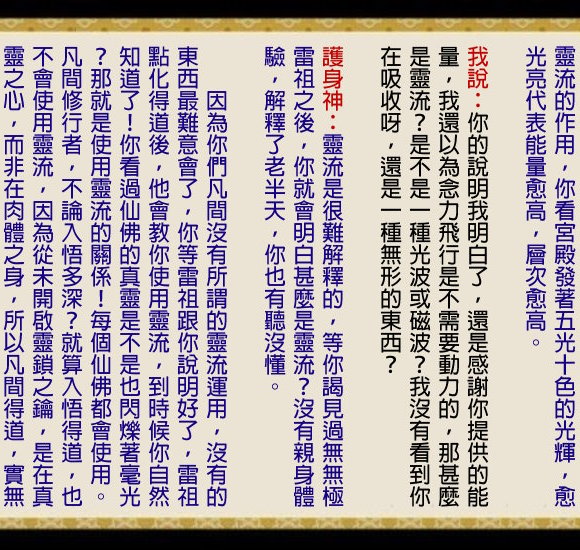 靈流的作用，你看宮殿發著五光十色的光輝，愈
光亮代表能量愈高，層次愈高。
我說：你的說明我明白了，還是感謝你提供的能
量，我還以為念力飛行是不需要動力的，那甚麼
是靈流？是不是一種光波或磁波？我沒有看到你
在吸收呀，還是一種無形的東西？
護身神：靈流是很難解釋的，等你謁見過無無極
雷祖之後，你就會明白甚麼是靈流？沒有親身體
驗，解釋了老半天，你也有聽沒懂。
因為你們凡間沒有所謂的靈流運用，沒有的
東西最難意會了，你等雷祖跟你說明好了，雷祖
點化得道後，他會教你使用靈流，到時候你自然
知道了！你看過仙佛的真靈是不是也閃爍著毫光
？那就是使用靈流的關係！每個仙佛都會使用。
凡間修行者，不論入悟多深？就算入悟得道，也
不會使用靈流，因為從未開啟靈鎖之鑰，是在真
靈之心，而非在肉體之身，所以凡間得道，實無